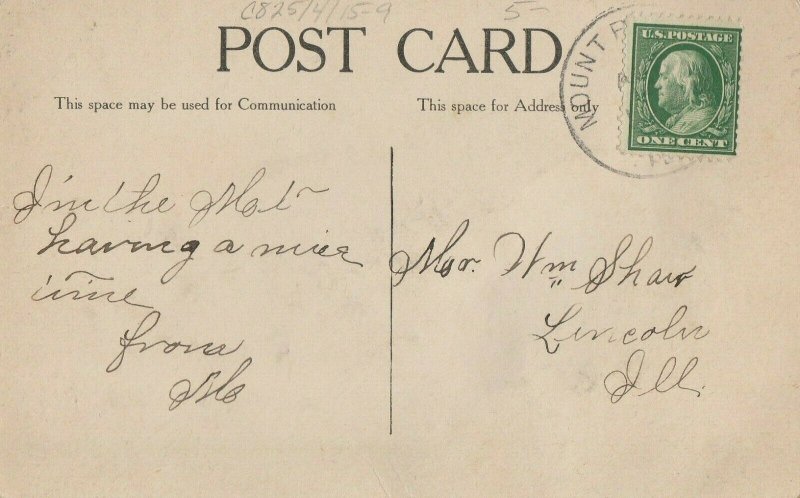 C825/4/15-9
5-
POST CARD
This space may be used for Communication
This space for Address only
MOUNT
U.S. POSTAGE
ONE CENT
I'm the
having a nice
time
from
Mr. Wm Shaw
Lincoln
Ill.